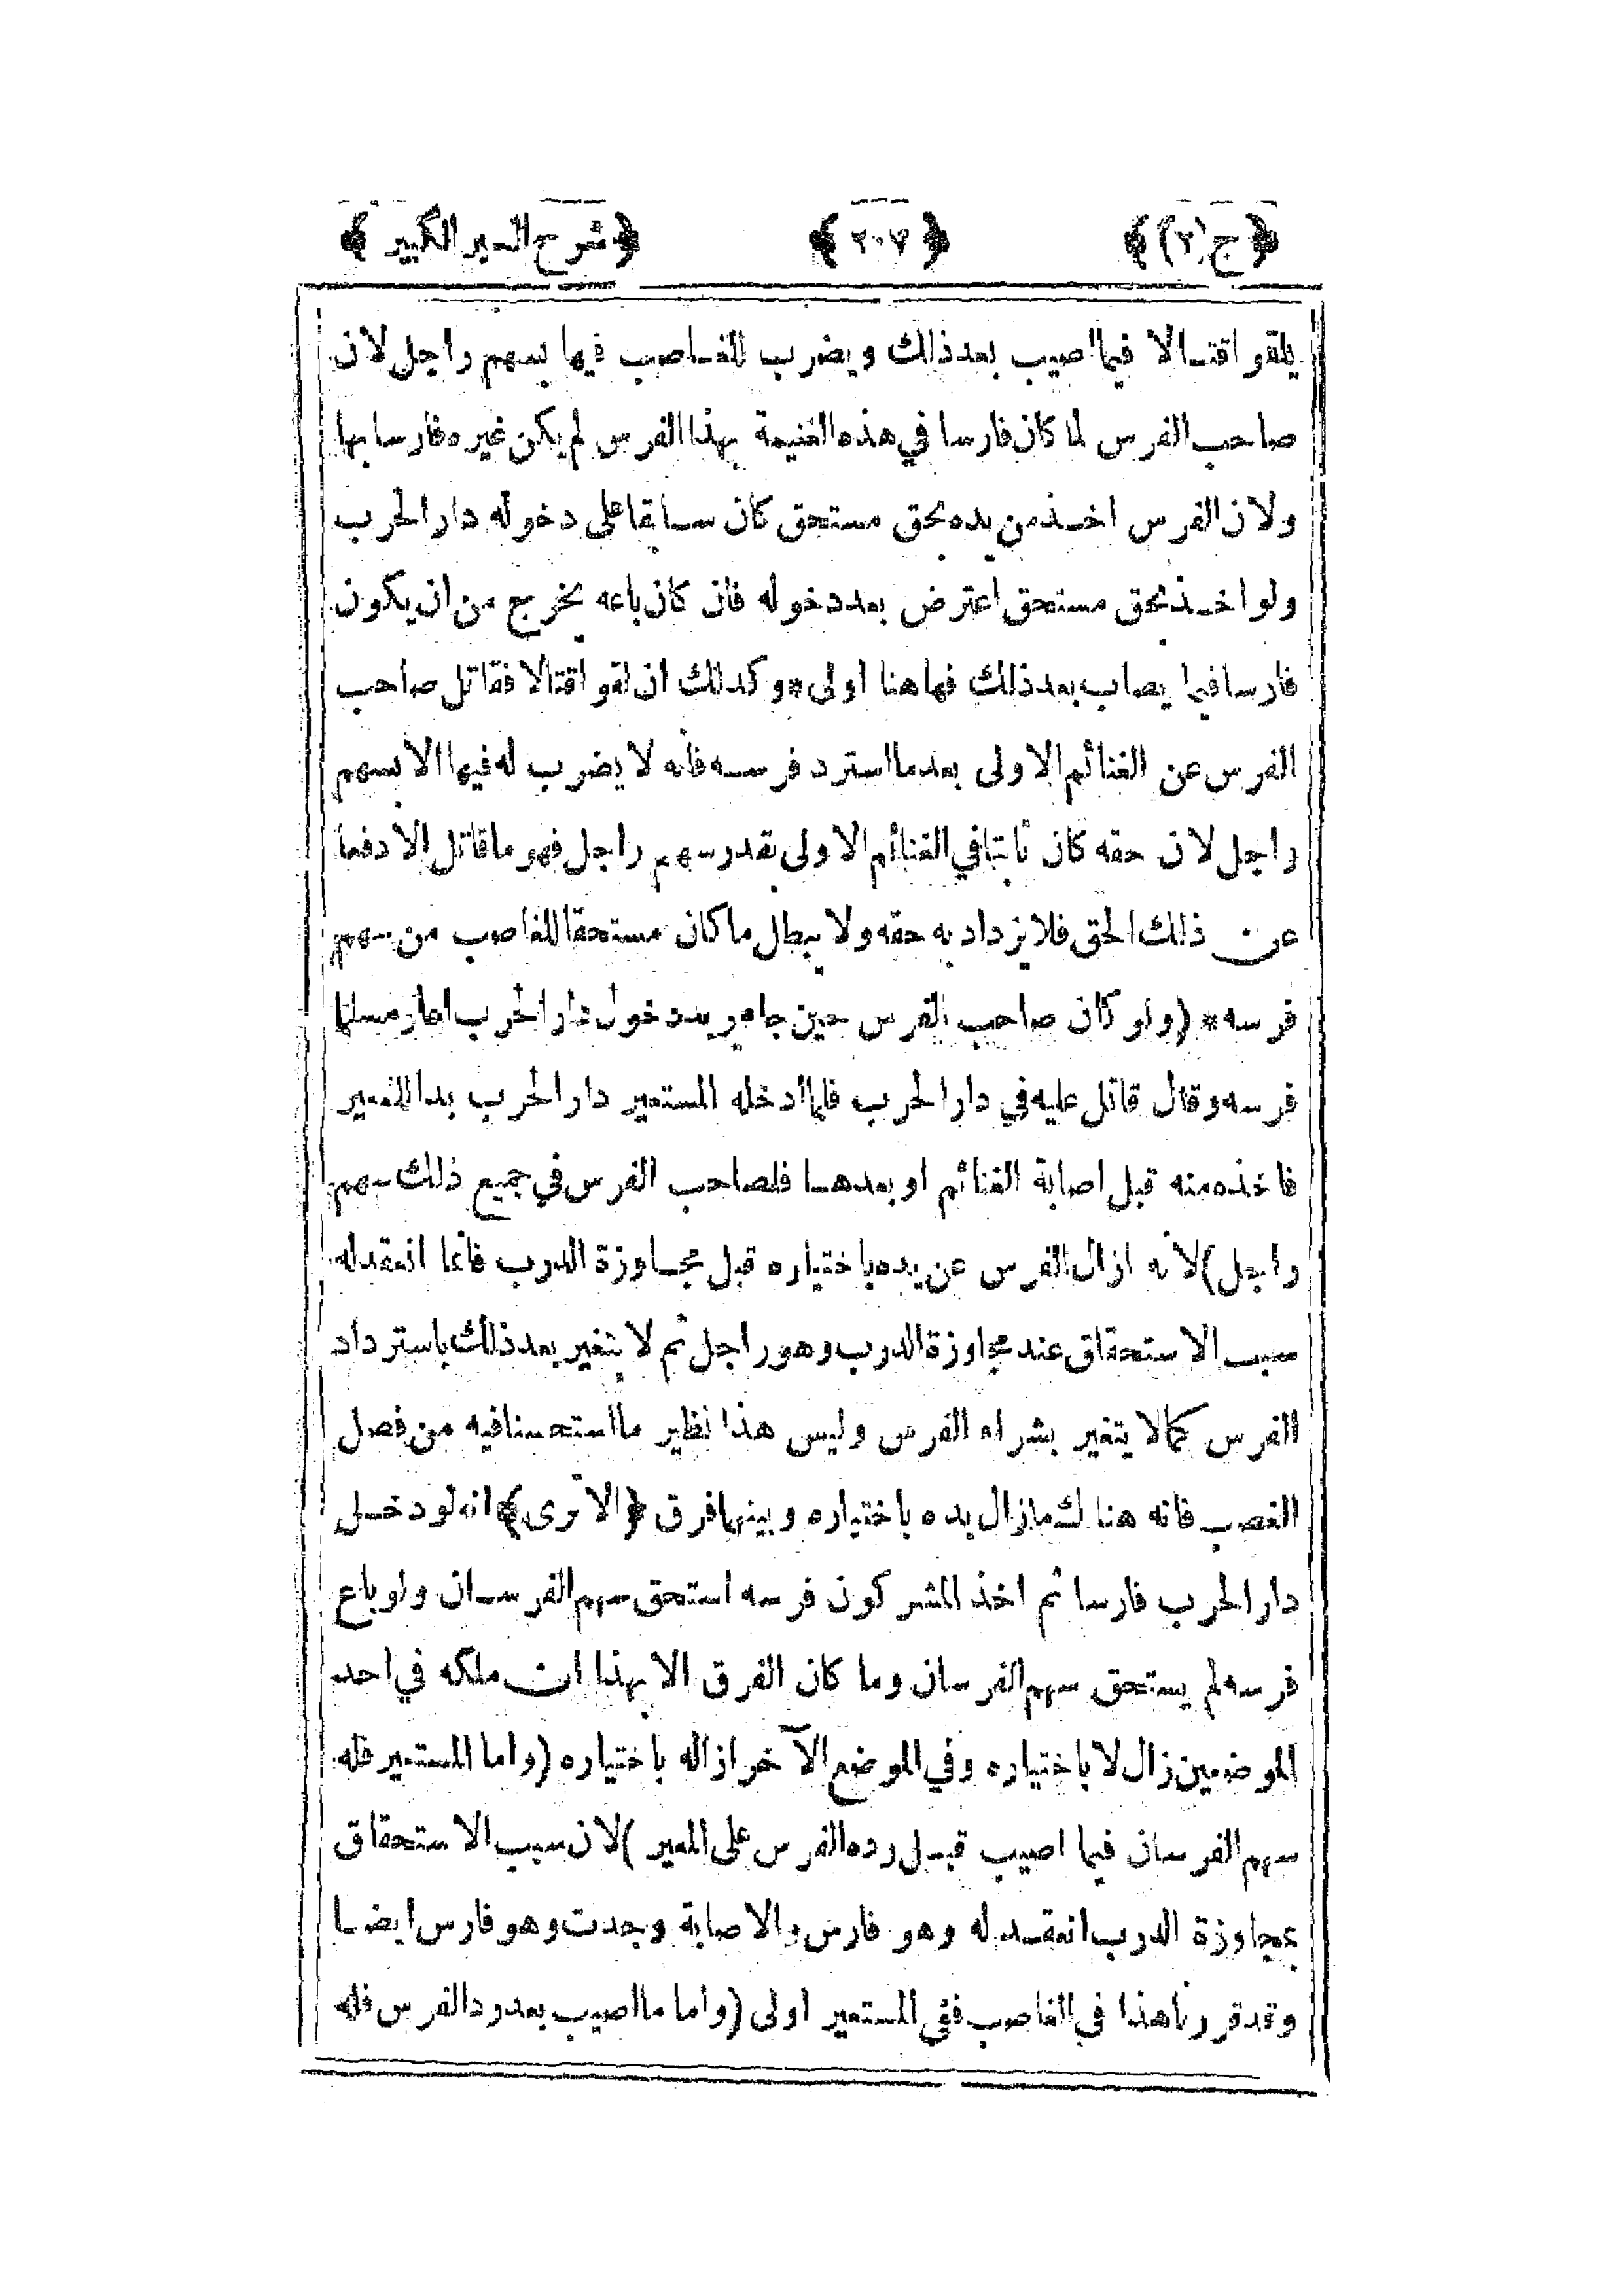 ﴿ج (٢)﴾ ﴿٢٠٧﴾ ﴿شرح السير الكبير﴾
يلقوا قتالا فيما اصيب بعد ذلك ويضرب للغاصب فيها بسهم راجل لان
صاحب الفرس لما كان فارسا في هذه الغنيمة بهذا الفرس لم يكن غيره فارسا بها
ولان الفرس اخذ من يده بحق مستحق كان سابقا على دخوله دار الحرب
ولو اخذ بحق مستحق اعترض بعد دخوله فان كان باعه يخرج من ان يكون
فارسا فيما يصاب بعد ذلك فهاهنا اولى * وكذلك ان لقوا قتالا فقاتل صاحب
الفرس عن الغنائم الاولى بعد ما استرد فرسه فانه لا يضرب له فيها الا بسهم
راجل لان حقه كان ثابتا في الغنائم الاولى بقدر سهم راجل فهو ما قاتل الا دفعا
عن ذلك الحق فلا يزداد به حقه ولا يبطل ما كان مستحقا للغاصب من سهم
فرسه * (ولو كان صاحب الفرس حين جاء يريد دخول دار الحرب اعار مسلما
فرسه وقال قاتل عليه في دار الحرب فلما ادخله المستعير دار الحرب بدا للمعير
فاخذه منه قبل اصابة الغنائم او بعدها فلصاحب الفرس في جميع ذلك سهم
راجل) لانه ازال الفرس عن يده باختياره قبل مجاوزة الدرب فانما انعقد له
سبب الاستحقاق عند مجاوزة الدرب وهو راجل ثم لا يتغير بعد ذلك باسترداد
الفرس كما لا يتغير بشراء الفرس وليس هذا نظير ما استحسنا فيه من فصل
الغصب فانه هناك ما زال يده باختياره وبينهما فرق ﴿الا ترى﴾ انه لو دخل
دار الحرب فارسا ثم اخذ المشركون فرسه استحق سهم الفرسان ولو باع
فرسه لم يستحق سهم الفرسان وما كان الفرق الا بهذا ان ملكه في احد
الموضعين زال لا باختياره وفي الموضع الآخر ازاله باختياره (واما المستعير فله
سهم الفرسان فيما اصيب قبل رده الفرس على المعير) لان سبب الاستحقاق
بمجاوزة الدرب انعقد له وهو فارس والاصابة وجدت وهو فارس ايضا
وقد قررنا هذا في الغاصب ففي المستعير اولى (واما ما اصيب بعد رد الفرس فله